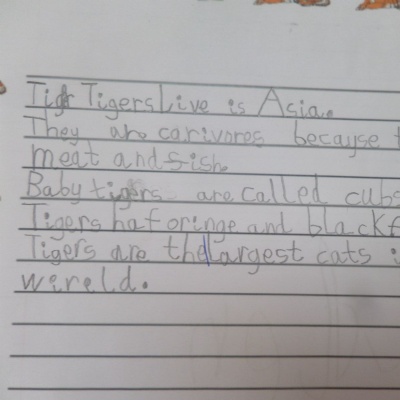 Tigr Tigers Live is Asia.
They are carivores becauyse
meat and fish.
Baby tigers are called cubs
Tigers haf oringe and black f
Tigers are the largest cats i
wireld.